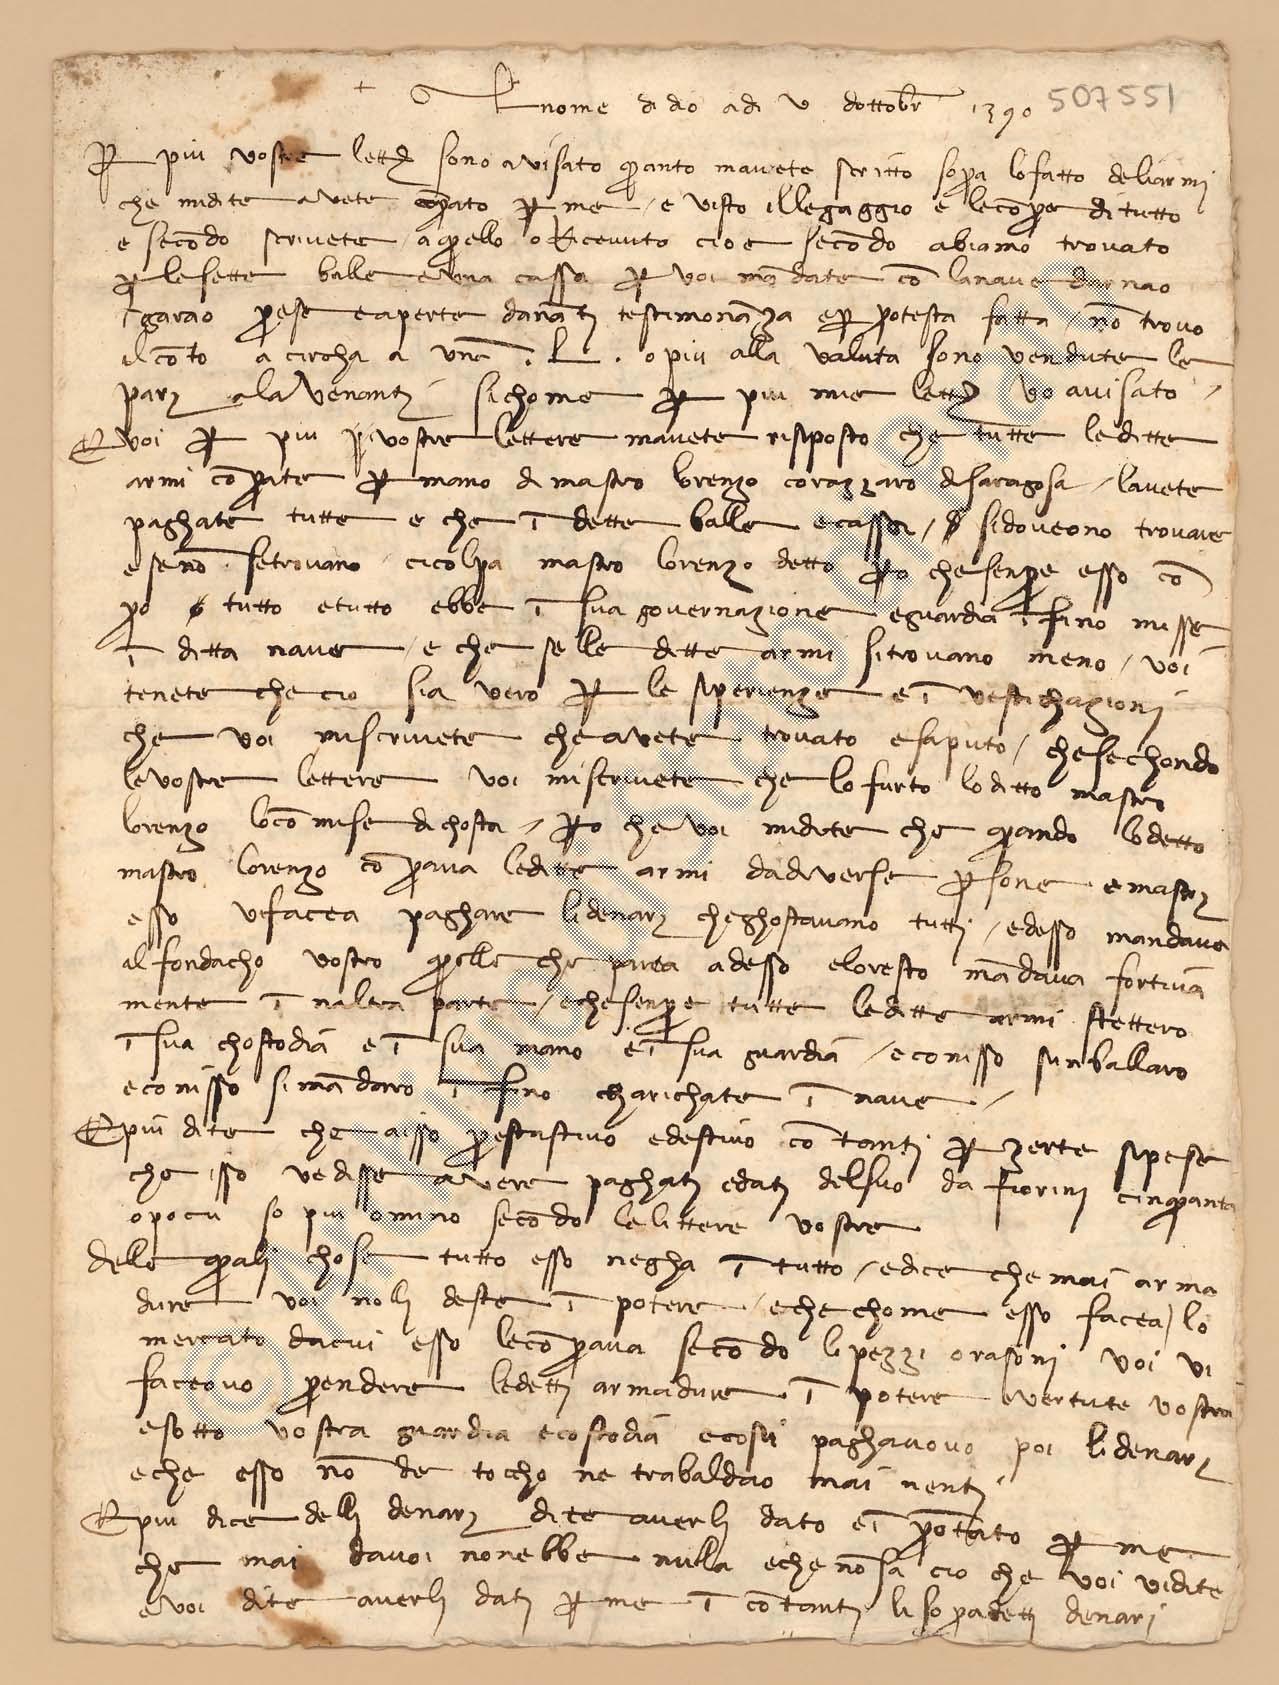 + Al nome di dio adi v dottobr 1390 507551
Per piu vostre letter sono avisato quanto mavete scritto sopra lo fatto deliarmi
che mi dite avete conprato per me / e visto illegaggio e le conpre di tutto
e secondo scrivete / a quello o Ricevuto cioe secondo abiamo trovato
per le sette balle e una cassa per voi mandate con la nave darnao
garao prese e aperte davanti testimonanza e per protesta fatta / non trovo
il conto a circha a . L . o piu alla valuta sono vendute le
 a la Venanti sichome per piu mie letter vo avisato /
E voi per piu vostre lettere mavete risposto che tutte le ditte
armi conprate per mano di mastro lorenzo corazzaro di saragosa / lavete
paghate tutte e che in dette balle e casse / si doveono trovare
e se non se trovano / ci colpa mastro lorenzo detto pero che senpre esso con
pro tutto e tutto ebbe in sua governazione e guardia in fino misse
in ditta nave / e che se lle dette armi si trovano meno / voi
tenete che cio sia vero per le sperienze e investichazioni
che voi mi scrivete che avete trovato e saputo / che sechondo
le vostre lettere voi mi scrivete che lo furto lo ditto mastro
lorenzo lo conmise di chosta / pero che voi mi dite che quando lo detto
mastro lorenzo conprava le ditte armi da diverse persone e mastri
esso ve facea paghare li denari che ghostavano tutti / ed esso mandava
al fondacho vostro quelle che parea ad esso e lo resto mandava fortiva
mente in naltra parte / e che senpre tutte le ditte armi stettero
in sua chostodia e in sua mano e in sua guardia / e con isso sunballaro
e con isso si mandaro in fino charichate in nave /
E piu dite che a isso prestastivo e destivo contanti per zerte spese
che isso ve disse avere paghati e dati del suo da fiorini cinquanta
o pocu so piu o mino secondo le littere vostre
dele quali chose tutto esso negha in tutto / e dice che mai arma
dure voi no li deste in potere / e che chome esso facea lo
mercato da cui esso le conprava secondo li pezzi o rasoni voi vi
faceovo prendere le detti armadure in potere e vertute vostra
e sotto vostra guardia e costodia e cosi paghavovo poi li denari
e che esso non de tocho ne trabaldao mai nenti
E piu dice deli denari dite averli dato e in prontato per me
che mai da voi non ebbe nulla e che non sa cio che voi vi dite
e voi dite averli dati per me in contanti li sopradetti denari